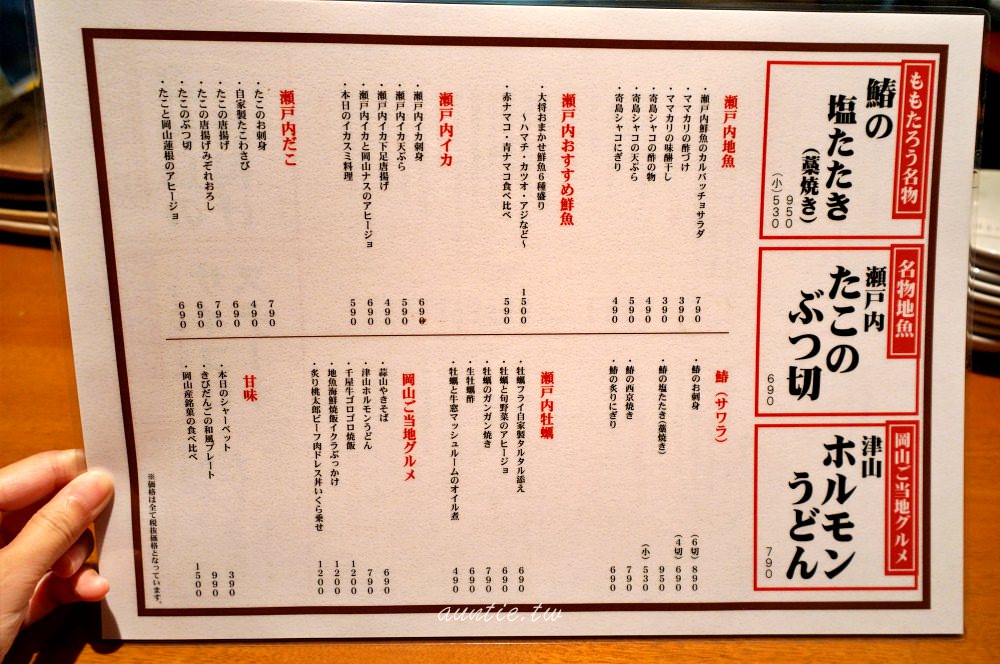 ももたろう名物
鰆の
塩たたき
(藁焼き)
950
(小)530
名物地魚
瀬戸内
たこの
ぶつ切
690
岡山ご当地グルメ
津山
ホルモン
うどん
790
瀬戸内地魚
・瀬戸内鮮魚のカルパッチョサラダ 790
・ママカリの酢づけ 390
・ママカリの味醂干し 390
・寄島シャコの酢の物 490
・寄島シャコの天ぷら 590
・寄島シャコにぎり 490
瀬戸内おすすめ鮮魚
・大将おまかせ鮮魚6種盛り
〜ハマチ・カツオ・アジなど〜 1500
・赤ナマコ・青ナマコ食べ比べ 590
瀬戸内イカ
・瀬戸内イカ刺身 690
・瀬戸内イカ天ぷら 590
・瀬戸内イカ下足唐揚げ 490
・瀬戸内イカと岡山ナスのアヒージョ 690
・本日のイカスミ料理 590
瀬戸内だこ
・たこのお刺身 790
・自家製たこわさび 490
・たこの唐揚げ 690
・たこの唐揚げみぞれおろし 790
・たこのぶつ切 690
・たこと岡山蓮根のアヒージョ 690
鰆(サワラ)
・鰆のお刺身 (6切)890
(4切)690
・鰆の塩たたき(藁焼き) 950
(小)530
・鰆の西京焼き 790
・鰆の炙りにぎり 690
瀬戸内牡蠣
・牡蠣フライ自家製タルタル添え 690
・牡蠣と旬野菜のアヒージョ 690
・牡蠣のガンガン焼き 790
・生牡蠣酢 690
・牡蠣と牛窓マッシュルームのオイル煮 490
岡山ご当地グルメ
・蒜山やきそば 690
・津山ホルモンうどん 790
・千屋牛ゴロゴロ焼飯 1200
・地魚海鮮焼飯イクラぶっかけ 1200
・炙り桃太郎ビーフ肉ドレス丼いくら乗せ 1200
甘味
・本日のシャーベット 390
・きびだんごの和風プレート 990
・岡山産銘菓の食べ比べ 1500
※価格は全て税抜価格となっています。
auntie.tw